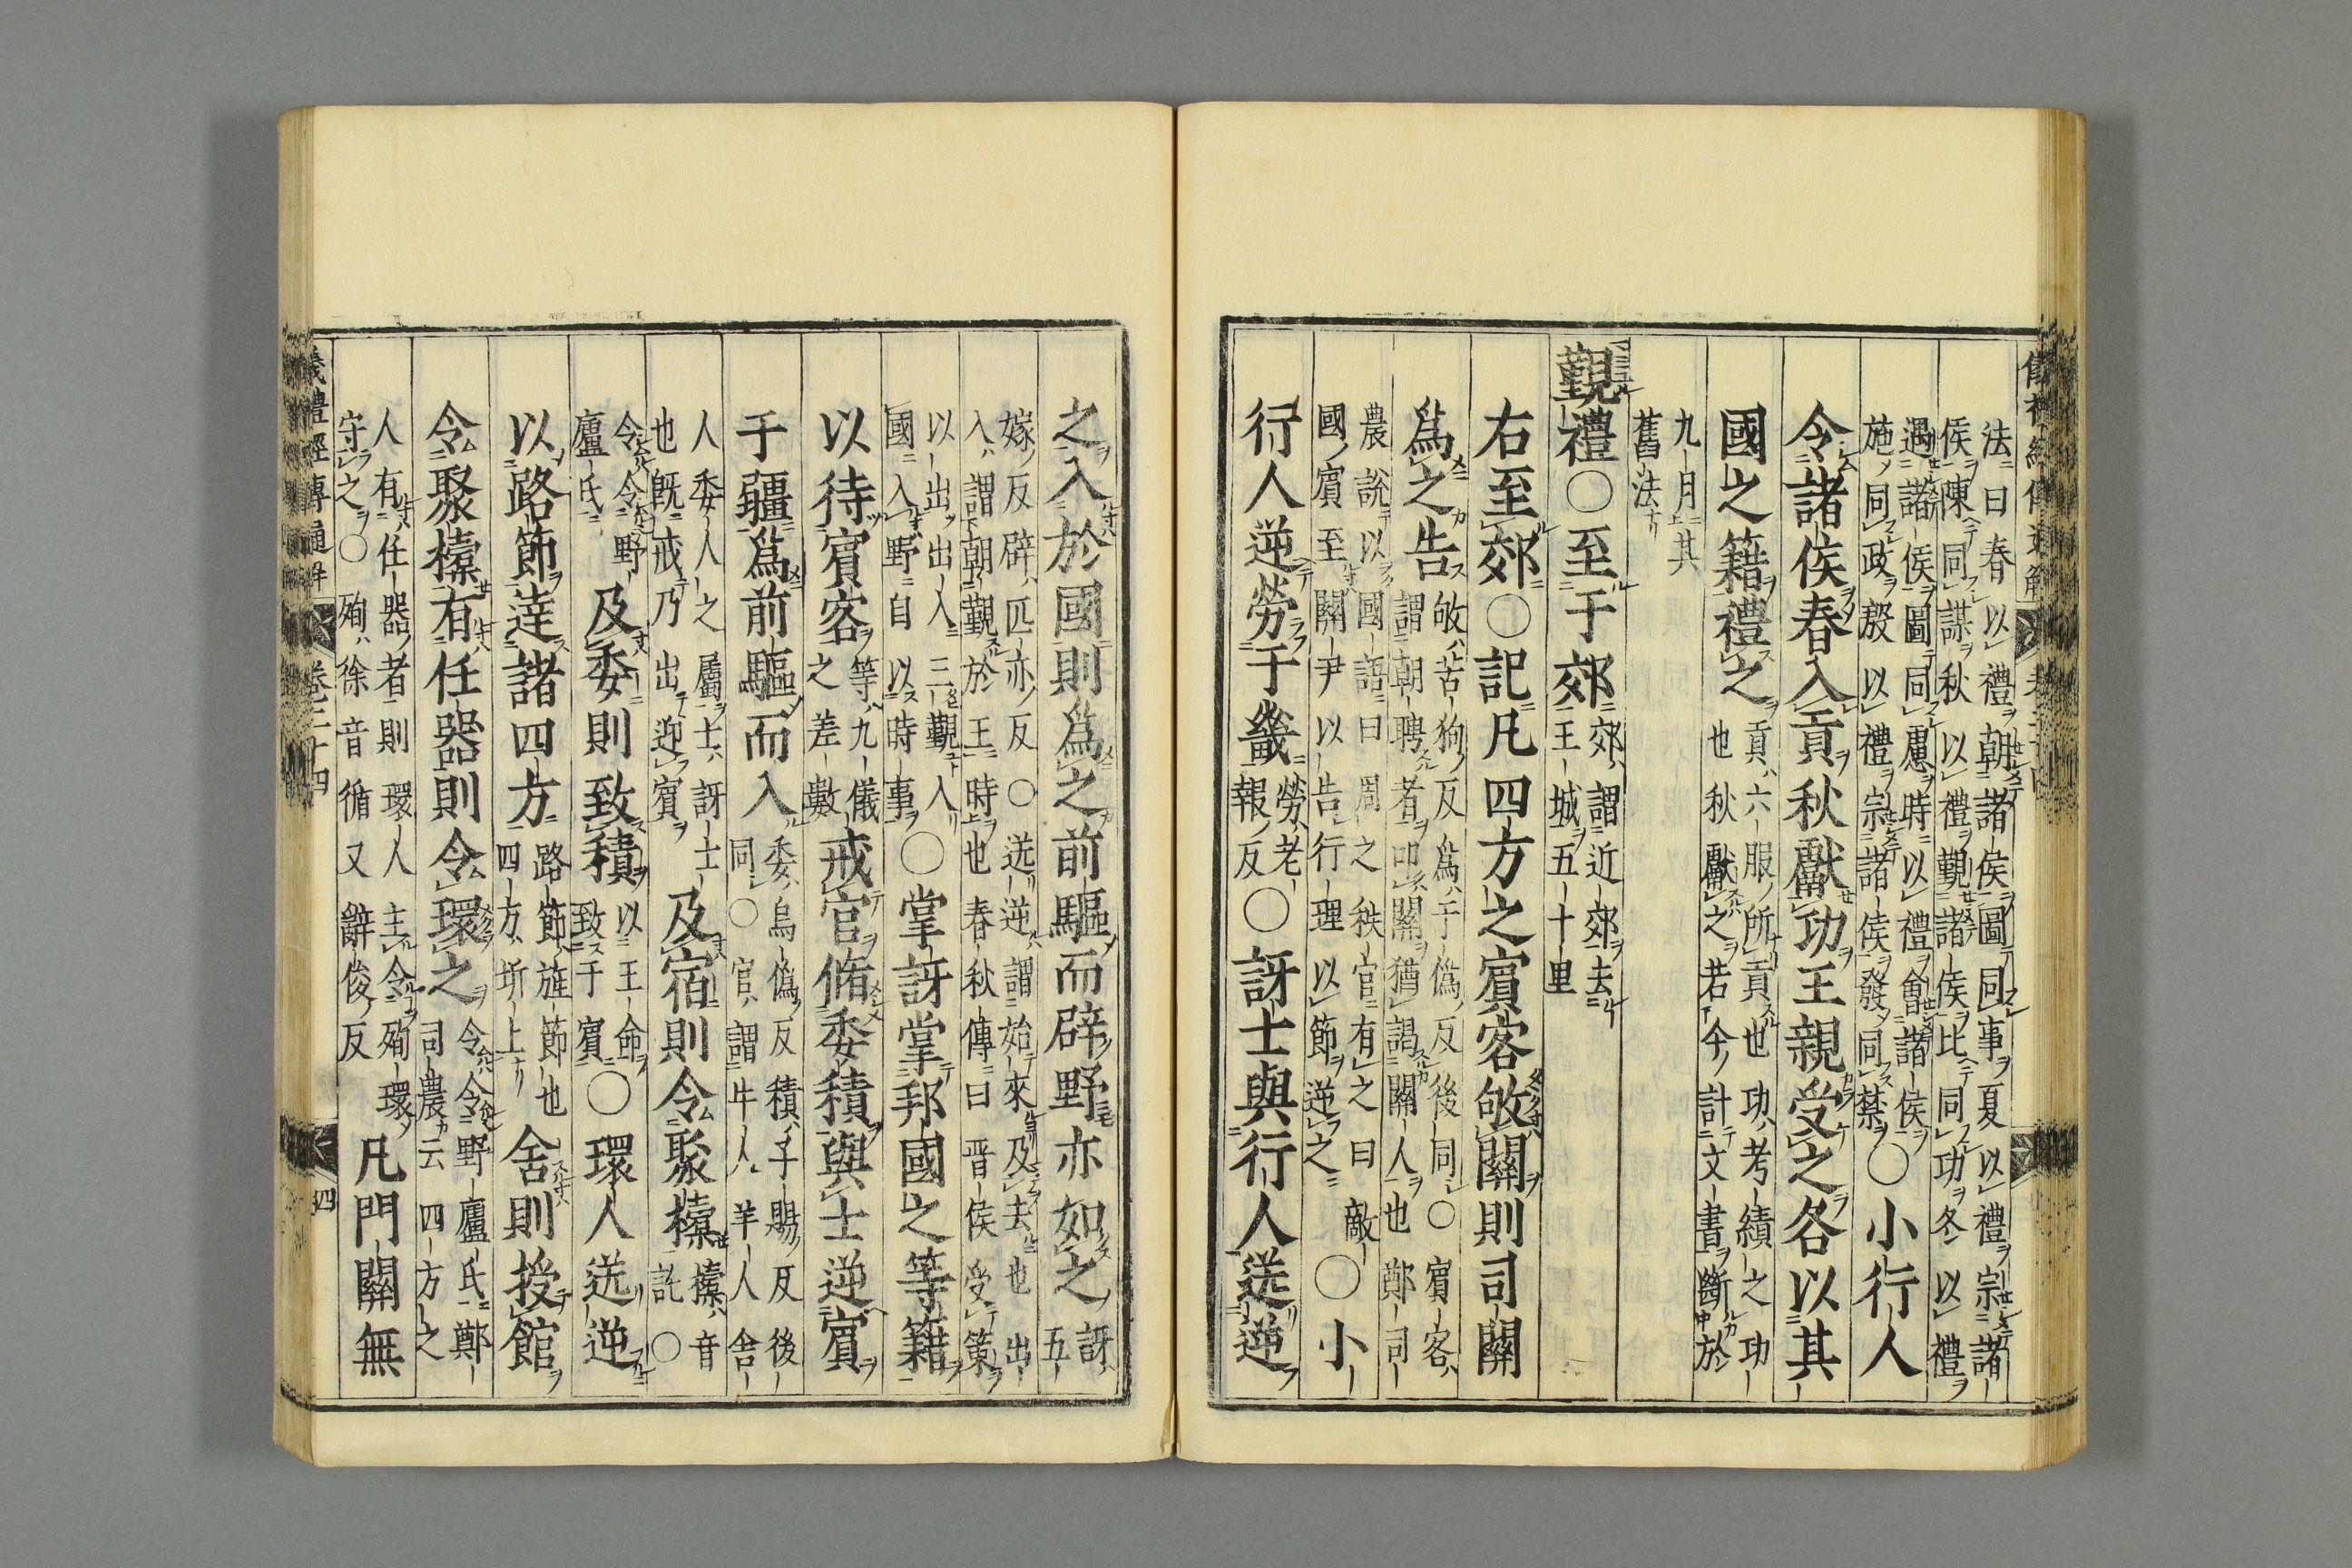 儀禮經傳通解
法曰春以禮朝諸侯圖同事夏以禮宗諸
侯陳同謀秋以禮覲諸侯比同功冬以禮
遇諸侯圖同慮時以禮會諸侯
施同政殷以禮宗諸侯發同禁○小行人
令諸侯春入貢秋獻功王親受之各以其
國之籍禮之貢六服所貢也功考績之功
也秋獻之若今計文書斷於
九月其
舊法
覲禮○至于郊郊謂近郊去
王城五十里
右至郊○記凡四方之賓客敂關則司關
爲之告敂苦狗反爲于僞反後同○賓客
謂朝聘者叩關猶謁關人也鄭司
農說以國語曰周之秩官有之曰敵
國賓至關尹以告行理以節逆之○小
行人逆勞于畿勞老
報反○訝士與行人送逆
之入於國則爲之前驅而辟野亦如之訝五
嫁反辟匹亦反○送逆謂始來及去也出
入謂朝覲於王時也春秋傳曰晋侯受策
以出出入三覲入
國入野自以時事○掌訝掌邦國之等籍
以待賓客等九儀
之差數戒官脩委積與士逆賓
于疆爲前驅而入委烏僞反積子賜反後
同○官謂牛人羊人舍
人委人之屬士訝士
也既戒乃出迎賓及宿則令聚㯓㯓音
託○
令令野
廬氏及委則致積以王命
致于賓○環人送逆
以路節達諸四方路節旌節也
四方圻上舍則授館
令聚㯓有任器則令環之令令野廬氏鄭
司農云四方之
人有任器者則環人主令殉環
守之○殉徐音循又辭俊反凡門關無
儀禮經傳通解
卷二十四
四